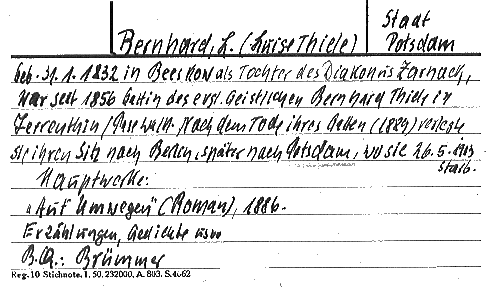 Bernhard, L. (Luise Thiele)
Stadt
Potsdam
geb. 31.1.1832 in Beeskow als Tochter des Diakonus Zarnack,
war seit 1856 Gattin des evgl. Geistlichen Bernhard Thiele in
Zerrenthin / Pasewalk. Nach dem Tode ihres Gatten (1889) verlegte
sie ihren Sitz nach Berlin, später nach Potsdam, wo sie 26.5.1903
starb.
Hauptwerke:
"Auf Umwegen" (Roman), 1886.
Erzählungen, Gedichte usw
B.Q.: Brümmer
Reg. 10 Stichnote. I. 50. 232000. A. 803. S. 4662